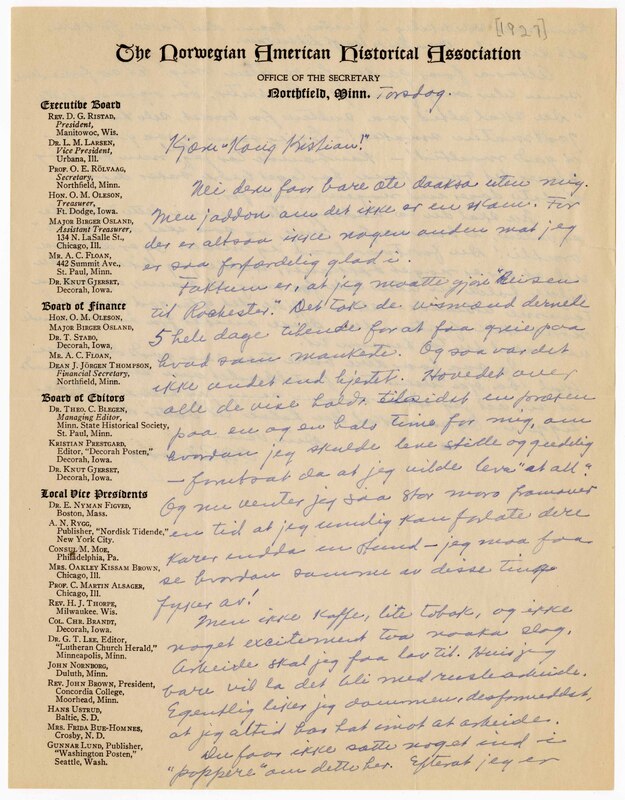 [1927]
The Norwegian American Historical Association
OFFICE OF THE SECRETARY
Northfield, Minn. Torsdag.
Executive Board
REV. D. G. RISTAD,
President,
Manitowoc, Wis.
DR. L. M. LARSEN,
Vice President,
Urbana, Ill.
PROF. O. E. RÖLVAAG,
Secretary,
Northfield, Minn.
HON. O. M. OLESON,
Treasurer,
Ft. Dodge, Iowa.
MAJOR BIRGER OSLAND,
Assistant Treasurer,
134 N. LaSalle St.,
Chicago, Ill.
MR. A. C. FLOAN,
442 Summit Ave.,
St. Paul, Minn.
DR. KNUT GJERSET,
Decorah, Iowa.
Board of Finance
HON. O. M. OLESON,
MAJOR BIRGER OSLAND,
DR. T. STABO,
Decorah, Iowa.
MR. A. C. FLOAN,
DEAN J. JÖRGEN THOMPSON,
Financial Secretary,
Northfield, Minn.
Board of Editors
DR. THEO. C. BLEGEN,
Managing Editor,
Minn. State Historical Society,
St. Paul, Minn.
KRISTIAN PRESTGARD,
Editor, "Decorah Posten,"
Decorah, Iowa.
DR. KNUT GJERSET,
Decorah, Iowa.
Local Vice Presidents
DR. E. NYMAN FIGVED,
Boston, Mass.
A. N. RYGG,
Publisher, "Nordisk Tidende,"
New York City.
CONSUL M. MOE,
Philadelphia, Pa.
MRS. OAKLEY KISSAM BROWN,
Chicago, Ill.
PROF. C. MARTIN ALSAGER,
Chicago, Ill.
REV. H. J. THORPE,
Milwaukee, Wis.
COL. CHR. BRANDT,
Decorah, Iowa.
DR. G. T. LEE, Editor,
"Lutheran Church Herald,"
Minneapolis, Minn.
JOHN NORNBORG,
Duluth, Minn.
REV. JOHN BROWN, President,
Concordia College,
Moorhead, Minn.
HANS USTRUD,
Baltic, S. D.
MRS. FRIDA BUE-HOMNES,
Crosby, N. D.
GUNNAR LUND, Publisher,
"Washington Posten,"
Seattle, Wash.
Kjære "Kong Kristian!"
Nei dere faar bare ete uten mig.
Men jaddon om det ikke er en skam. For
der er altsaa ikke nogen anden mat jeg
er saa forfærdelig glad i.
Faktum er, at jeg maatte gjøre "Reisen
til Rochester." Det tok de vismænd dernede
5 hele dage tilende for at faa greie paa
hvad som mankerte. Og saa var det
ikke andet end hjertet. Hovedet over
alle de vise holdt tilsidst en
paa en og en halv time for mig, om
hvordan jeg skulde leve stille og gudelig
— forutsat da at jeg vilde leve "at all."
Og nu venter jeg saa stor moro framover
en tid at jeg umulig kan forlate dere
karer endda en stund — jeg maa faa
se hvordan somme av disse ting
fyker av!
Men ikke kaffe, lite tobak, og ikke
noget excitement tva noaka slag.
Arbeide skal jeg faa lov til. Hvis jeg
bare vil la det bli med arbeide.
Egentlig liker jeg dommen, desformedelst,
at jeg altid har hat imot at arbeide.
Du faar ikke sætte noget ind i
"poppere" om dette her. Efterat jeg er